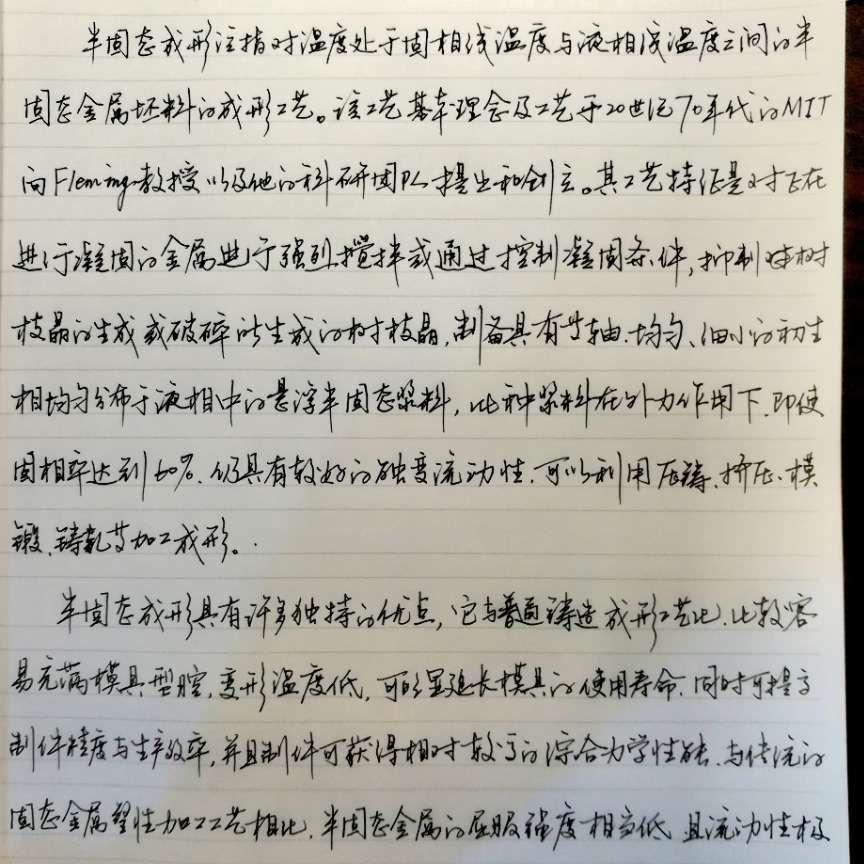 半固态成形法指对温度处于固相线温度与液相线温度之间的半
固态金属坯料的成形工艺。该工艺基本理念及工艺于20世纪70年代的MIT
的Fleming教授以及他的科研团队提出和创立。其工艺特征是对正在
进行凝固的金属进行强烈搅拌或通过控制凝固条件,抑制树
枝晶的生成或破碎所生成的树枝晶,制备具有等轴、均匀、细小的初生
相均匀分布于液相中的悬浮半固态浆料,此种浆料在外力作用下,即使
固相率达到60%,仍具有较好的触变流动性,可以利用压铸、挤压、模
锻、铸轧等加工成形。
半固态成形具有许多独特的优点,它与普通铸造成形工艺比,比较容
易充满模具型腔,变形温度低,可明显延长模具的使用寿命,同时可提高
制件精度与生产效率,并且制件可获得相对较高的综合力学性能,与传统的
固态金属塑性加工工艺相比,半固态金属的屈服强度相当低,且流动性极